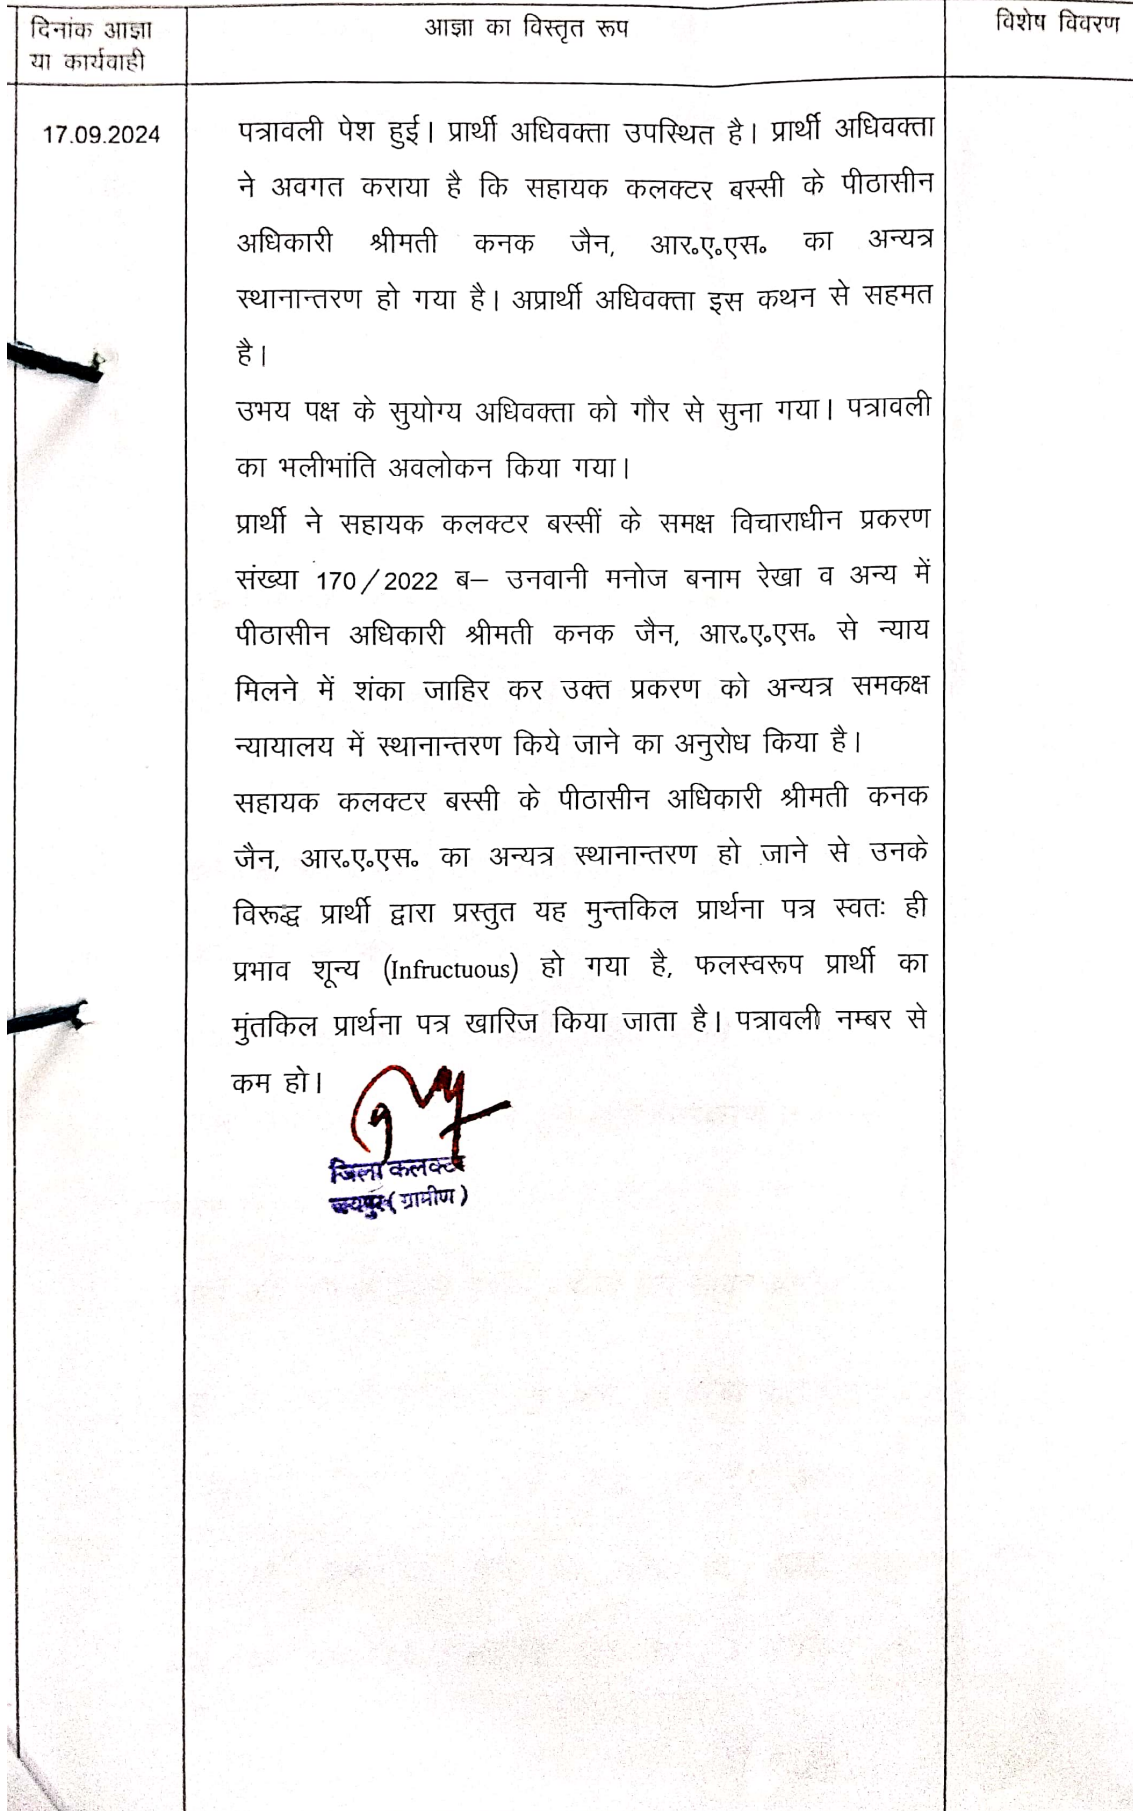 दिनांक आज्ञा
या कार्यवाही
आज्ञा का विस्तृत रूप
विशेष विवरण
17.09.2024
पत्रावली पेश हुई। प्रार्थी अधिवक्ता उपस्थित है। प्रार्थी अधिवक्ता
ने अवगत कराया है कि सहायक कलक्टर बस्सी के पीठासीन
अधिकारी श्रीमती कनक जैन, आर०ए०एस० का अन्यत्र
स्थानान्तरण हो गया है। अप्रार्थी अधिवक्ता इस कथन से सहमत
है।
उभय पक्ष के सुयोग्य अधिवक्ता को गौर से सुना गया। पत्रावली
का भलीभांति अवलोकन किया गया।
प्रार्थी ने सहायक कलक्टर बस्सीं के समक्ष विचाराधीन प्रकरण
संख्या 170/2022 ब– उनवानी मनोज बनाम रेखा व अन्य में
पीठासीन अधिकारी श्रीमती कनक जैन, आर०ए०एस० से न्याय
मिलने में शंका जाहिर कर उक्त प्रकरण को अन्यत्र समकक्ष
न्यायालय में स्थानान्तरण किये जाने का अनुरोध किया है।
सहायक कलक्टर बस्सी के पीठासीन अधिकारी श्रीमती कनक
जैन, आर०ए०एस० का अन्यत्र स्थानान्तरण हो जाने से उनके
विरूद्ध प्रार्थी द्वारा प्रस्तुत यह मुन्तकिल प्रार्थना पत्र स्वतः ही
प्रभाव शून्य (Infructuous) हो गया है, फलस्वरूप प्रार्थी का
मुंतकिल प्रार्थना पत्र खारिज किया जाता है। पत्रावली नम्बर से
कम हो।
जिला कलक्टर
जयपुर (ग्रामीण)